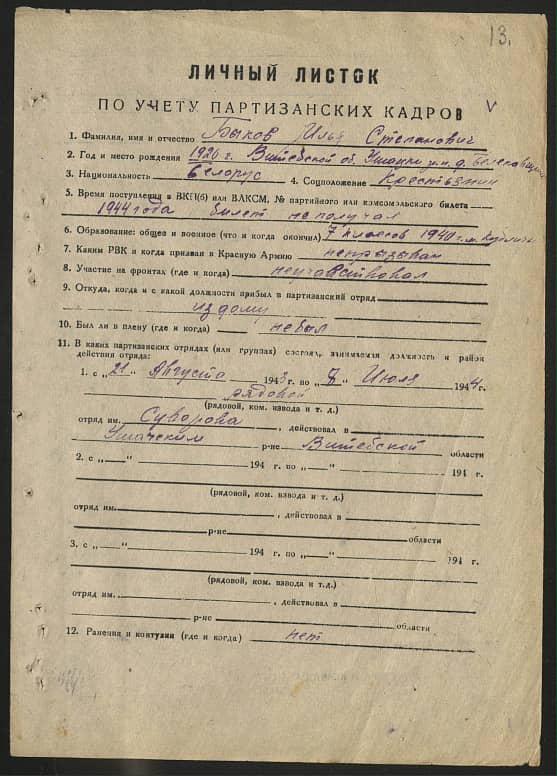 13.
ЛИЧНЫЙ ЛИСТОК
ПО УЧЕТУ ПАРТИЗАНСКИХ КАДРОВ V
1. Фамилия, имя и отчество Быков Илья Степанович
2. Год и место рождения 1926 г. Витебской об. Ушачки р.н. д.
3. Национальность Белорус 4. Соцположение Крестьянин
5. Время поступления в ВКП(б) или ВЛКСМ, № партийного или комсомольского билета
1944 года билет не получал
6. Образование: общее и военное (что и когда окончил) 7 классов 1940 г. м.
7. Каким РВК и когда призван в Красную Армию непрызыван
8. Участие на фронтах (где и когда) неучавствовал
9. Откуда, когда и с какой должности прибыл в партизанский отряд
из дому
10. Был ли в плену (где и когда) небыл
11. В каких партизанских отрядах (или группах) состоял, занимаемая должность и район
действия отряда:
1. с „21“ Августа 1943 г. по „7“ Июля 1944 г.
рядовой
(рядовой, ком. взвода и т. д.)
отряд им. Суворова, действовал в
Ушачским р-не Витебской области
2. с „ “ 194 г. по „ “ 194 г.
(рядовой, ком. взвода и т. д.)
отряд им. , действовал в
р-не области
3. с „ “ 194 г. по „ “ 194 г.
(рядовой, ком. взвода и т.д.)
отряд им. , действовал в
р-не области
12. Ранения и контузии (где и когда) нет